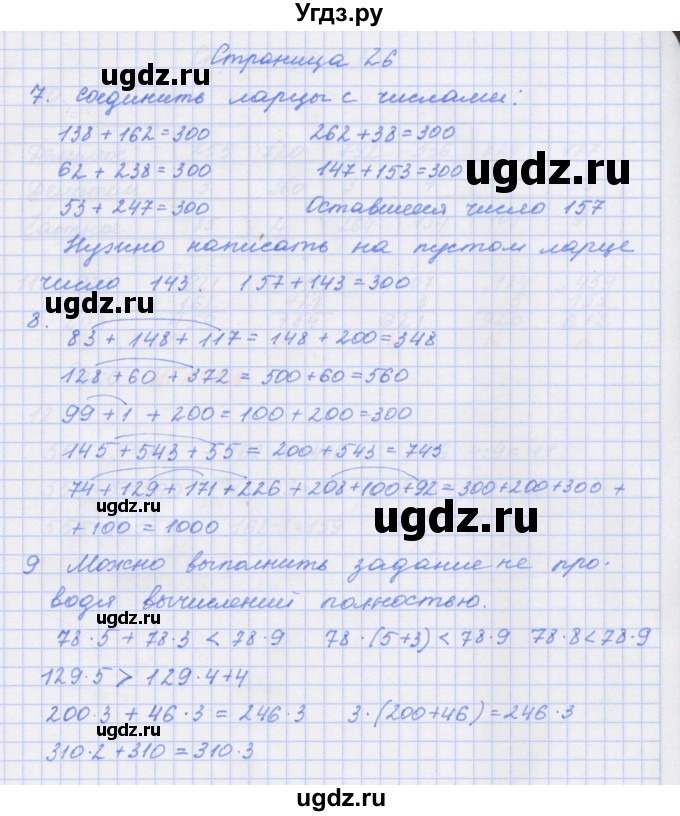 Угдз.ру
Страница 26
ugdz.ru
7. Соединить ларцы с числами:
138 + 162 = 300 262 + 38 = 300
62 + 238 = 300 147 + 153 = 300
ugdz.ru
ugdz.ru
53 + 247 = 300 Оставшееся число 157
Нужно написать на пустом ларце
число 143. 157 + 143 = 300
ugdz.ru
8.
83 + 148 + 117 = 148 + 200 = 348
128 + 60 + 372 = 500 + 60 = 560
99 + 1 + 200 = 100 + 200 = 300
145 + 543 + 55 = 200 + 543 = 743
74 + 129 + 171 + 226 + 208 + 100 + 92 = 300 + 200 + 300 +
+ 100 = 1000
ugdz.ru
9 Можно выполнить задание не про-
водя вычислений полностью.
78 · 5 + 78 · 3 < 78 · 9 78 · (5+3) < 78 · 9 78 · 8 < 78 · 9
129 · 5 > 129 · 4 + 4
200 · 3 + 46 · 3 = 246 · 3 3 · (200 + 46) = 246 · 3
ugdz.ru
ugdz.ru
310 · 2 + 310 = 310 · 3
ugdz.ru